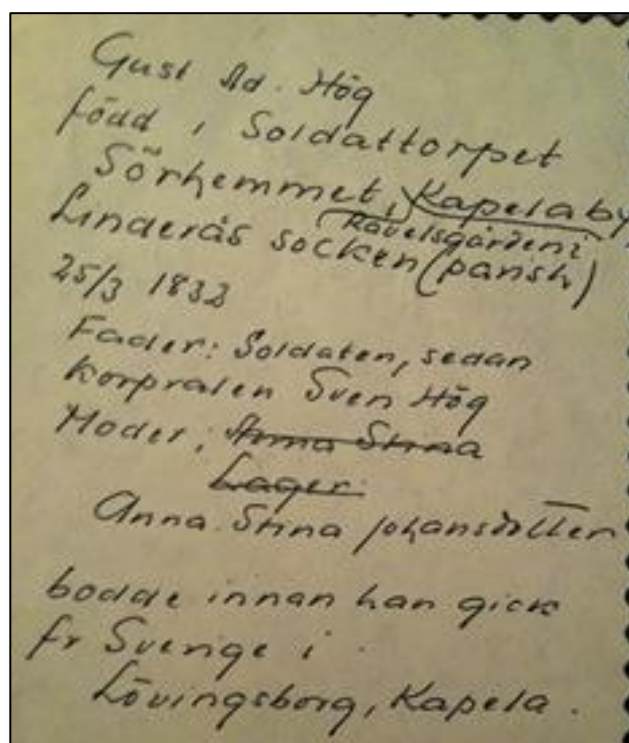 Gust Ad. Hög
född i Soldattorpet
Sörhemmet, Kapelaby,
Ravelsgården i
Linderås socken (parish)
25/3 1832
Fader: Soldaten, sedan
Korpralen Sven Hög
Moder; Anna Stina
Lager
Anna Stina Johansdotter
bodde innan han gick
fr Sverige i
Lövingsborg, Kapela.